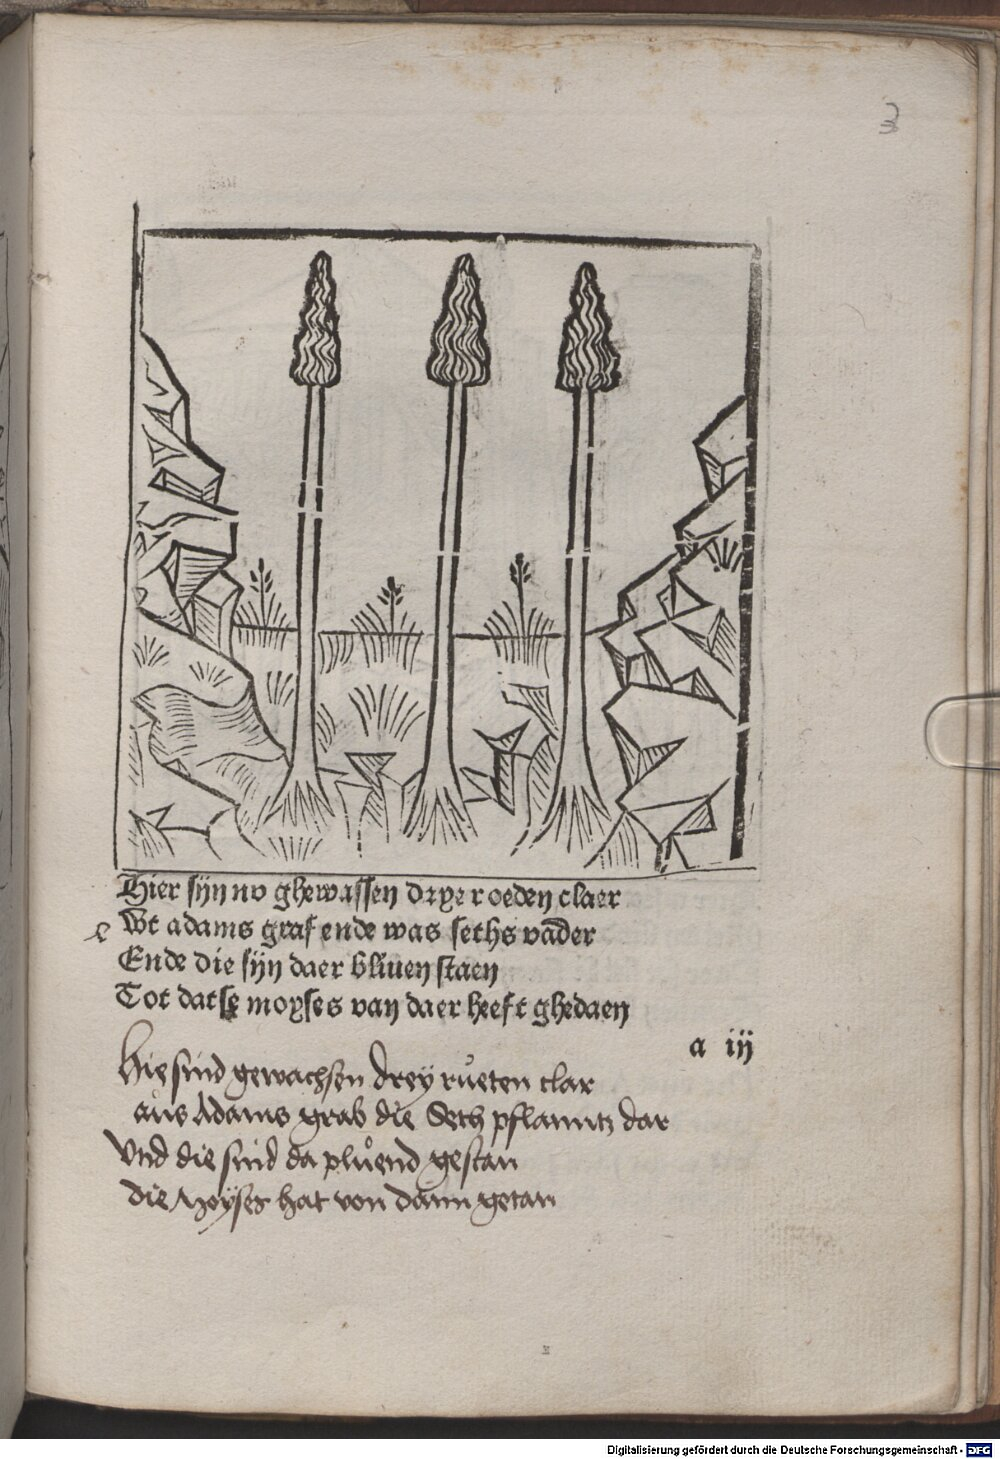 3
Hier sijn nv ghewassen drye roeden claer
Wt adams graf ende was seths vader
Ende die sijn daer bliuen staen
Tot datse moyses van daer heeft ghedaen
a iij
Hie sind gewachsen dreÿ růeten clar
aus Adams grab die Seth pflanntz dar
Vnd die sind da plůend gestan
die Moÿses hat von dann getan
Digitalisierung gefördert durch die Deutsche Forschungsgemeinschaft - DFG